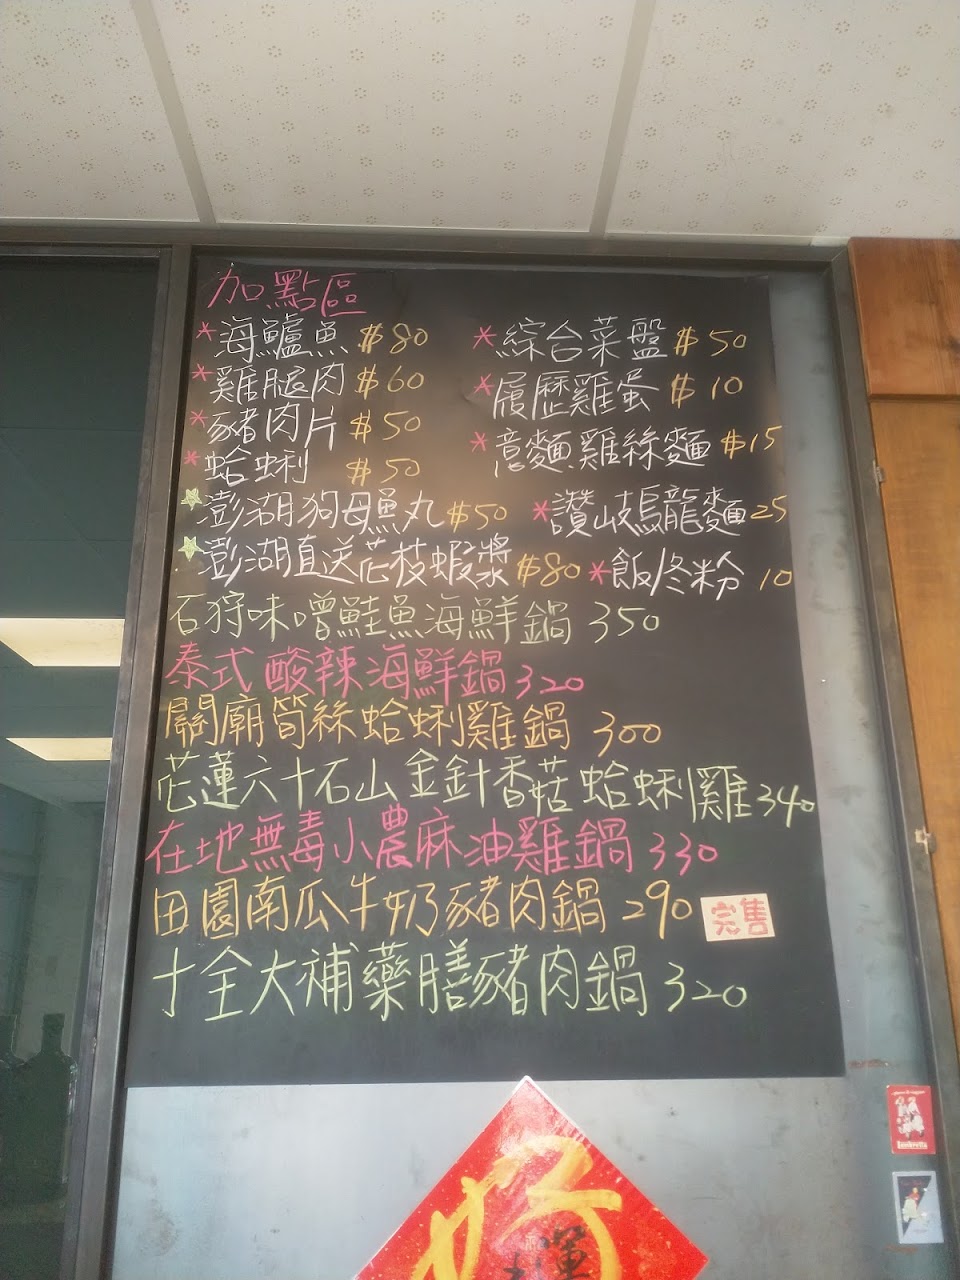 加點區
*海鱸魚 $80
*雞腿肉 $60
*豬肉片 $50
*蛤蜊 $50
澎湖狗母魚丸 $50
澎湖直送花枝蝦漿 $80
*綜合菜盤 $50
*履歷雞蛋 $10
*意麵.雞絲麵 $15
*讚岐烏龍麵 25
*飯.冬粉 10
石狩味噌鮭魚海鮮鍋 350
泰式酸辣海鮮鍋 320
關廟筍絲蛤蜊雞鍋 300
花蓮六十石山金針香菇蛤蜊雞 340
在地無毒小農麻油雞鍋 330
田園南瓜牛奶豬肉鍋 290 完售
十全大補藥膳豬肉鍋 320
好運